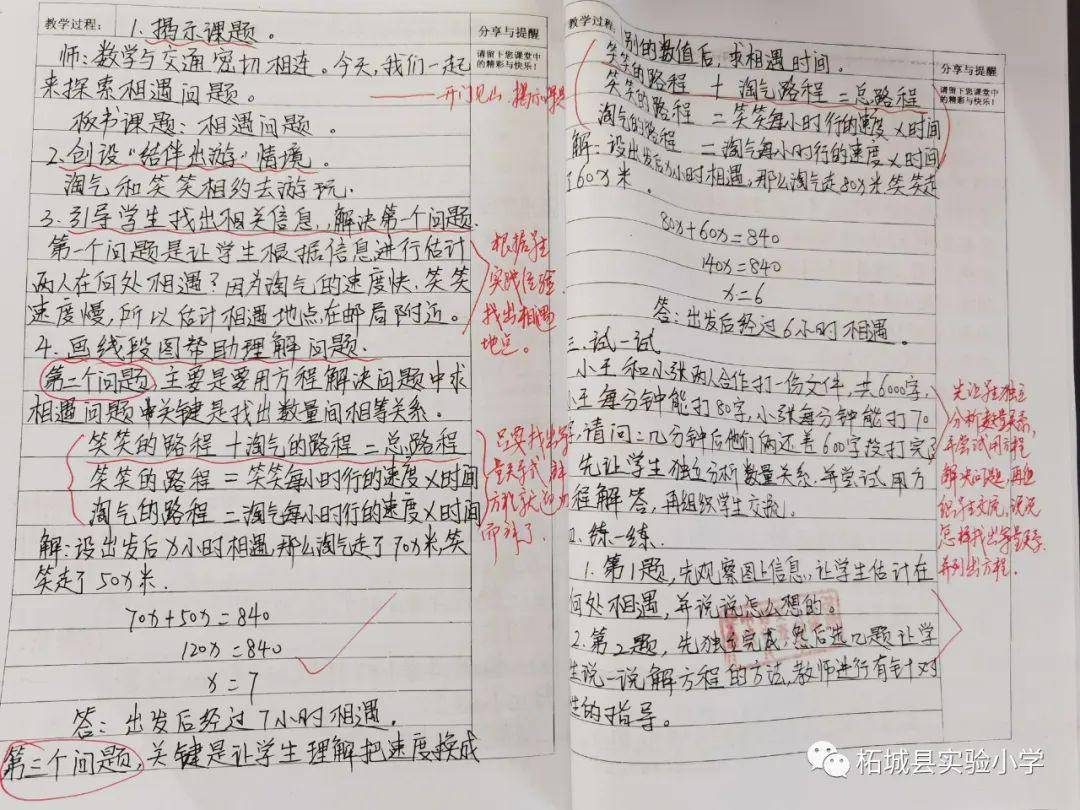 教学过程:
1. 揭示课题。
分享与提醒
请留下您课堂中
的精彩与快乐!
师:数学与交通密切相连。今天,我们一起
来探索相遇问题。
开门见山,揭示课题
板书课题:相遇问题。
2. 创设“结伴出游”情境。
淘气和笑笑相约去游玩.
3. 引导学生找出相关信息,解决第一个问题.
第一个问题是让学生根据信息进行估计
两人在何处相遇?因为淘气的速度快,笑笑
速度慢,所以估计相遇地点在邮局附近。
根据学生
实践经验
找出相遇
地点。
4. 画线段图帮助理解问题.
第二个问题,主要是要用方程解决问题中求
相遇问题中关键是找出数量间相等关系。
笑笑的路程+淘气的路程=总路程
笑笑的路程=笑笑每小时行的速度×时间
淘气的路程=淘气每小时行的速度×时间
只要找出等
量关系式,解
而解了.
解:设出发后x小时相遇,那么淘气走了70x米,笑
笑走了50x米.
70x+50x=840
120x=840
x=7
答:出发后经过7小时相遇.
第三个问题,关键是让学生理解把速度换成
教学过程:
别的数值后,求相遇时间.
分享与提醒
请留下您课堂中
的精彩与快乐!
笑笑的路程+淘气路程=总路程
笑笑的路程=笑笑每小时行的速度×时间
淘气的路程=淘气每小时行的速度×时间
解:设出发后x小时相遇,那么淘气走80x米,笑笑走
了60x米.
80x+60x=840
140x=840
x=6
答:出发后经过6小时相遇。
三.试一试
小王和小张两人合作打一份文件,共6000字,
小王每分钟能打80字,小张每分钟能打70
字,请问:几分钟后他们俩还差600字没打完?
先让学生独立分析数量关系,并尝试用方
程解答,再组织学生交流.
先让学生独立
分析数量关系,
并尝试用方程
解决问题,再组
织学生交流,说说
怎样找出等量关系
并列出方程.
练一练.
1. 第1题,先观察图上信息,让学生估计在
何处相遇,并说说怎么想的。
2. 第2题,先独立完成,然后选几题让学
生说一说解方程的方法,教师进行有针对
性的指导。
柘城县实验小学